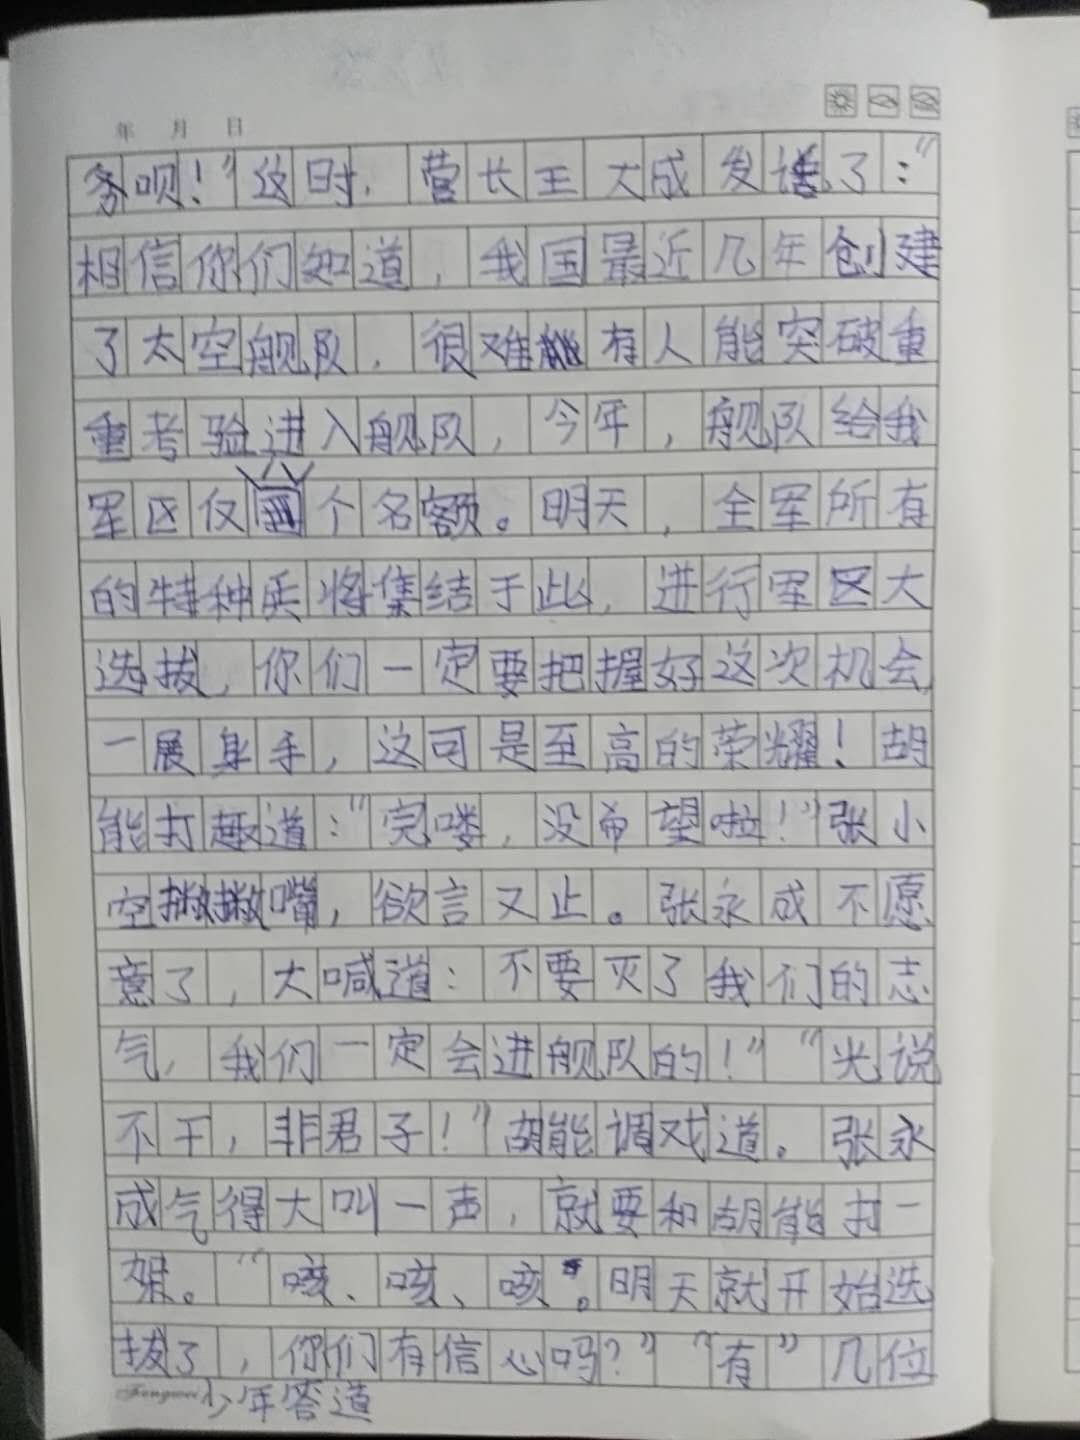 年 月 日
务呗！”这时，营长王大成发话了：“
相信你们知道，我国最近几年创建
了太空舰队，很难有人能突破重
重考验进入舰队，今年，舰队给我
军区仅四个名额。明天，全军所有
的特种兵将集结于此，进行军区大
选拔，你们一定要把握好这次机会
一展身手，这可是至高的荣耀！胡
能打趣道：“完喽，没希望啦！”张小
空撇撇嘴，欲言又止。张永成不愿
意了，大喊道：不要灭了我们的志
气，我们一定会进舰队的！”“光说
不干，非君子！”胡能调戏道。张永
成气得大叫一声，就要和胡能打一
架。“咳、咳、咳。明天就开始选
拔了，你们有信心吗？”“有”几位
少年答道